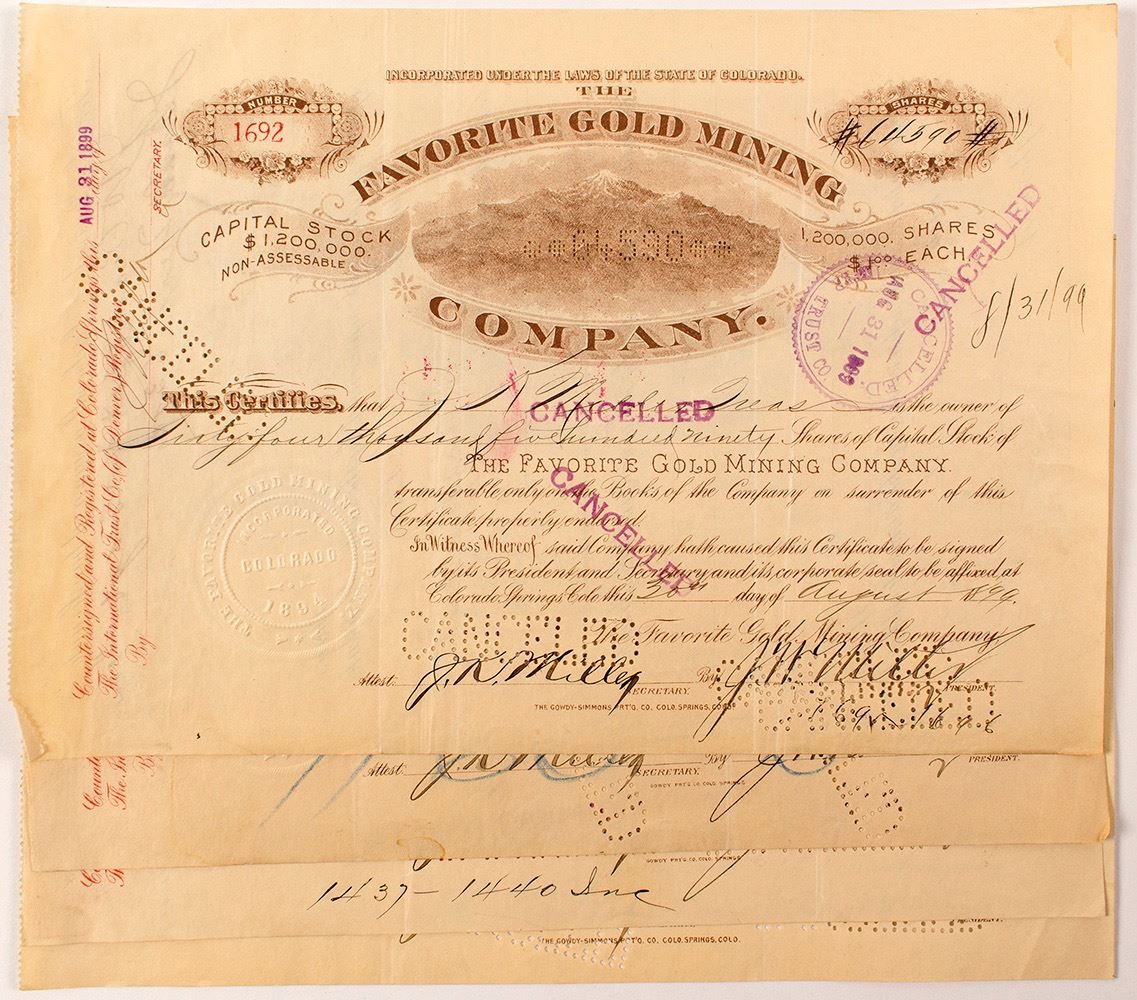 INCORPORATED UNDER THE LAWS OF THE STATE OF COLORADO.
THE
NUMBER
1692
SHARES
#64590#
FAVORITE GOLD MINING
COMPANY.
CAPITAL STOCK
$1,200,000.
NON-ASSESSABLE
**64,590**
1,200,000. SHARES
$1.00 EACH.
CANCELLED
CANCELLED.
AUG 31 1899
TRUST CO
8/31/99
This Certifies, that J. K. Miller Treas is the owner of
CANCELLED
Sixty four thousand five hundred ninety Shares of Capital Stock of
THE FAVORITE GOLD MINING COMPANY.
transferable only on the Books of the Company on surrender of this
Certificate properly endorsed.
CANCELLED
In Witness Whereof said Company hath caused this Certificate to be signed
by its President and Secretary and its corporate seal to be affixed, at
Colorado Springs Colo this 30th day of August 1899.
The Favorite Gold Mining Company
CANCELLED
Attest: J. K. Miller SECRETARY. By PRESIDENT.
THE GOWDY-SIMMONS PRT'G. CO. COLO. SPRINGS, COLO.
THE FAVORITE GOLD MINING COMPANY
INCORPORATED
COLORADO
1894
Countersigned and Registered at Colorado Springs this AUG 31 1899 day of
The International Trust Co. (of Denver) Registrar
By SECRETARY.
Attest: By PRESIDENT.
SECRETARY.
GOWDY PRT'G. CO. COLO. SPRINGS
GOWDY PRT'G. CO. COLO. SPRINGS
1437-1440 Inc
PRESIDENT.
THE GOWDY-SIMMONS PRT'G. CO. COLO. SPRINGS, COLO.